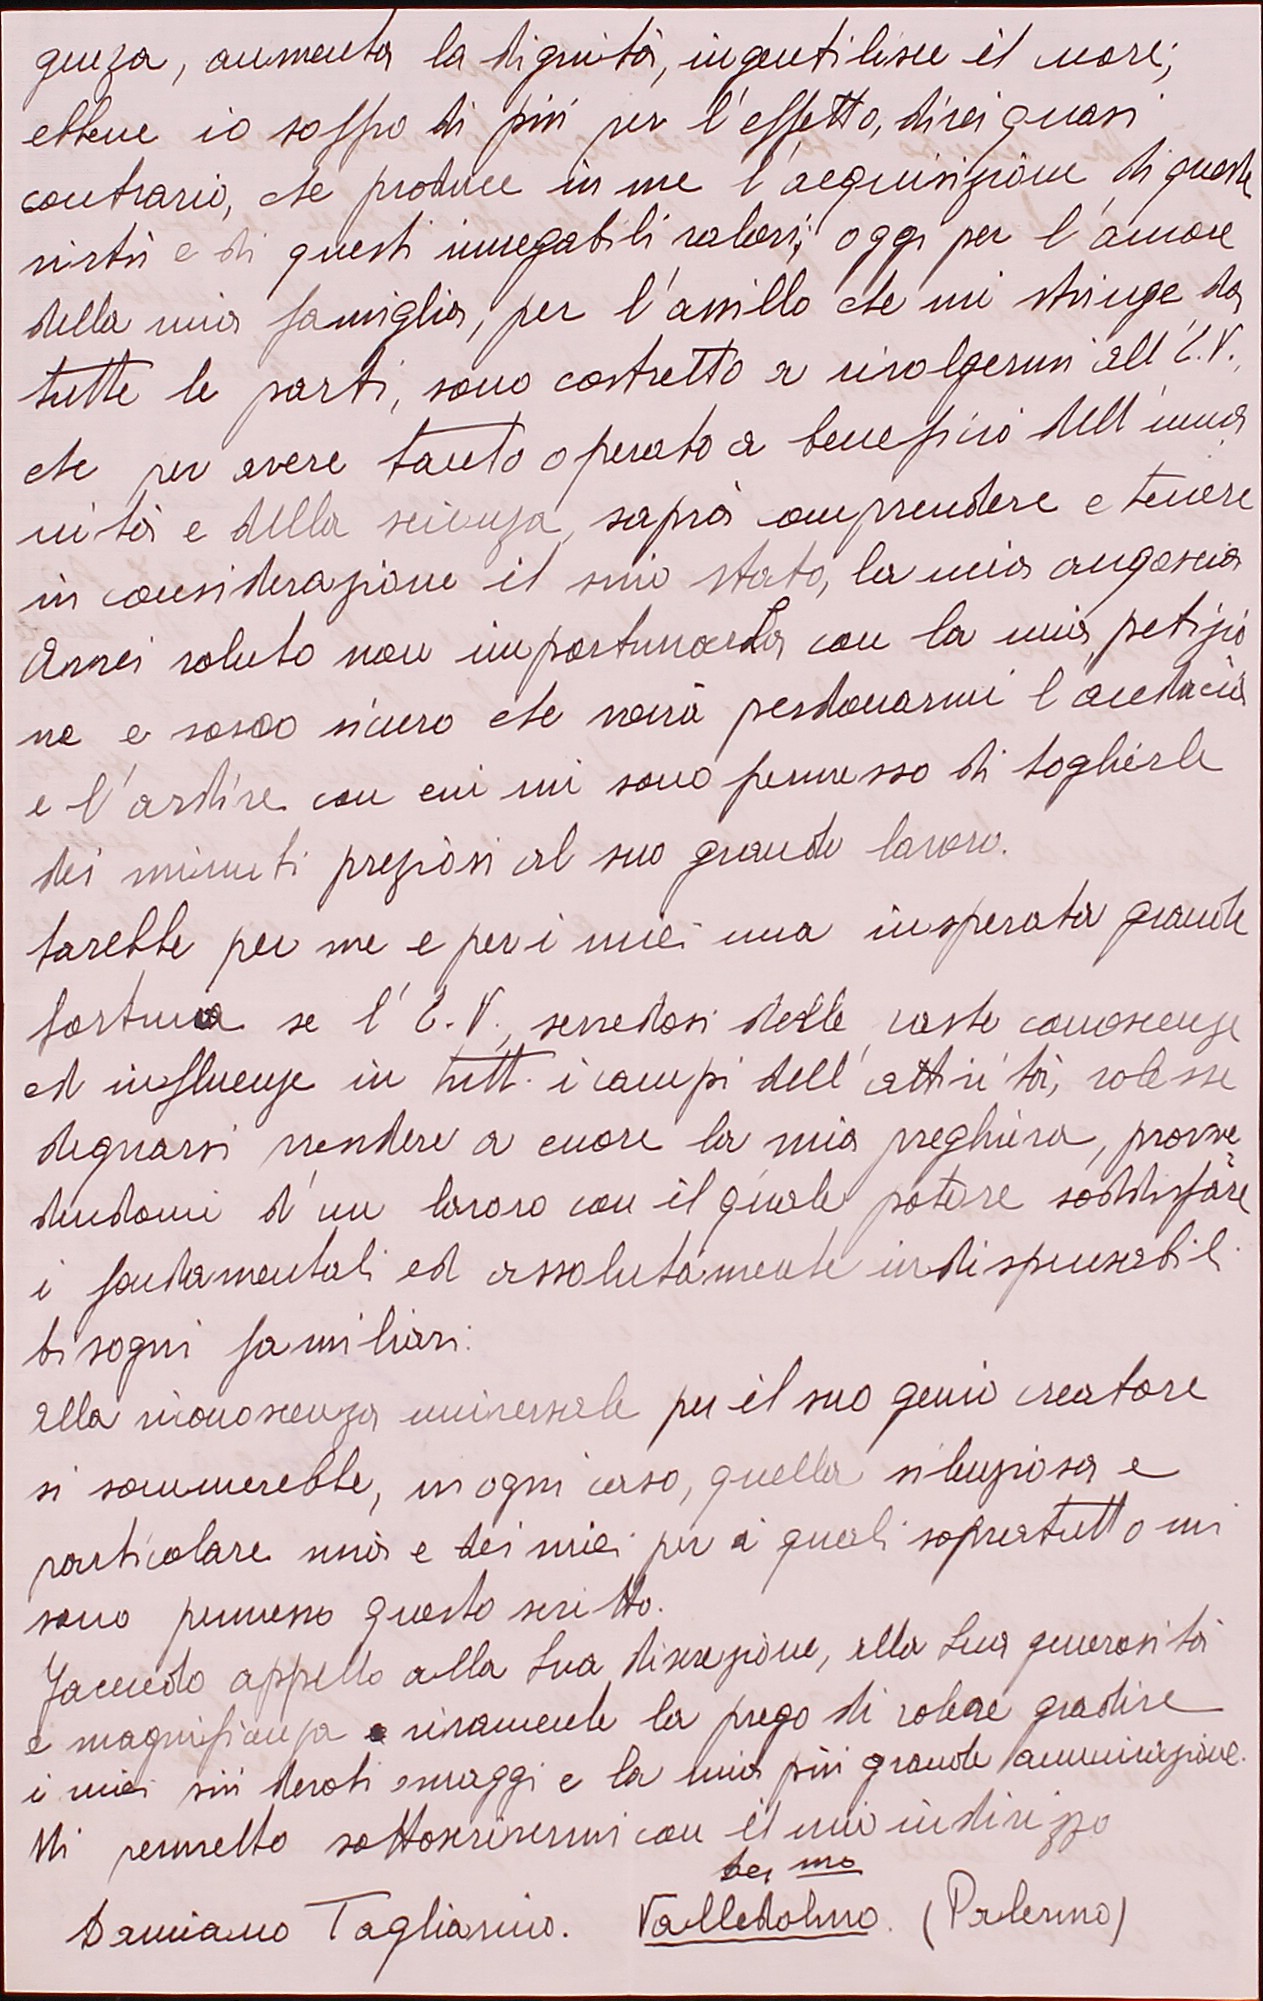 genza, aumenta la dignità, ingentilisce il cuore;
ebbene io soffro di più per l'effetto, direi quasi
contrario, che produce in me l'acquisizione di queste
virtù e di questi innegabili valori; oggi per l'amore
della mia famiglia, per l'assillo che mi stringe da
tutte le parti, sono costretto a rivolgermi all'E.V.,
che per avere tanto operato a beneficio dell'uma
nità e della scienza, saprà comprendere e tenere
in considerazione il mio stato, la mia angoscia
Avrei voluto non importunarla con la mia petizio
ne e sono sicuro che vorrà perdonarmi l'audacia
e l'ardire con cui mi sono permesso di toglierle
dei minuti preziosi al suo grande lavoro.
Sarebbe per me e per i miei una insperata grande
fortuna se l'E.V., servedosi delle vaste conoscenze
ed influenze in tutti i campi dell'attività, volesse
degnarsi prendere a cuore la mia preghiera, provve
dendomi d'un lavoro con il quale potere soddisfare
i fondamentali ed assolutamente indispensabili
bisogni familiari:
alla riconoscenza universale per il suo genio creatore
si sommerebbe, in ogni caso, quella silenziosa e
particolare mia e dei miei per i quali sopratutto mi
sono permesso questo scritto.
Facendo appello alla Sua discrezione, alla Sua generosità
e magnificenza vivamente la prego di volere gradire
i miei più devoti omaggi e la mia più grande ammirazione.
Mi permetto sottoscrivermi con il mio indirizzo
dev.mo
Damiano Tagliarino. Valledolmo. (Palermo)